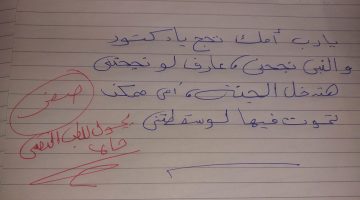 يارب أمك تحج يا دكتور
والنبى نجحنى، عارف لو نجحتنى
هتدخل الجنة، أمى ممكن
تموت فيها لو سقطتنى
صفر
يحول للطب النفسى